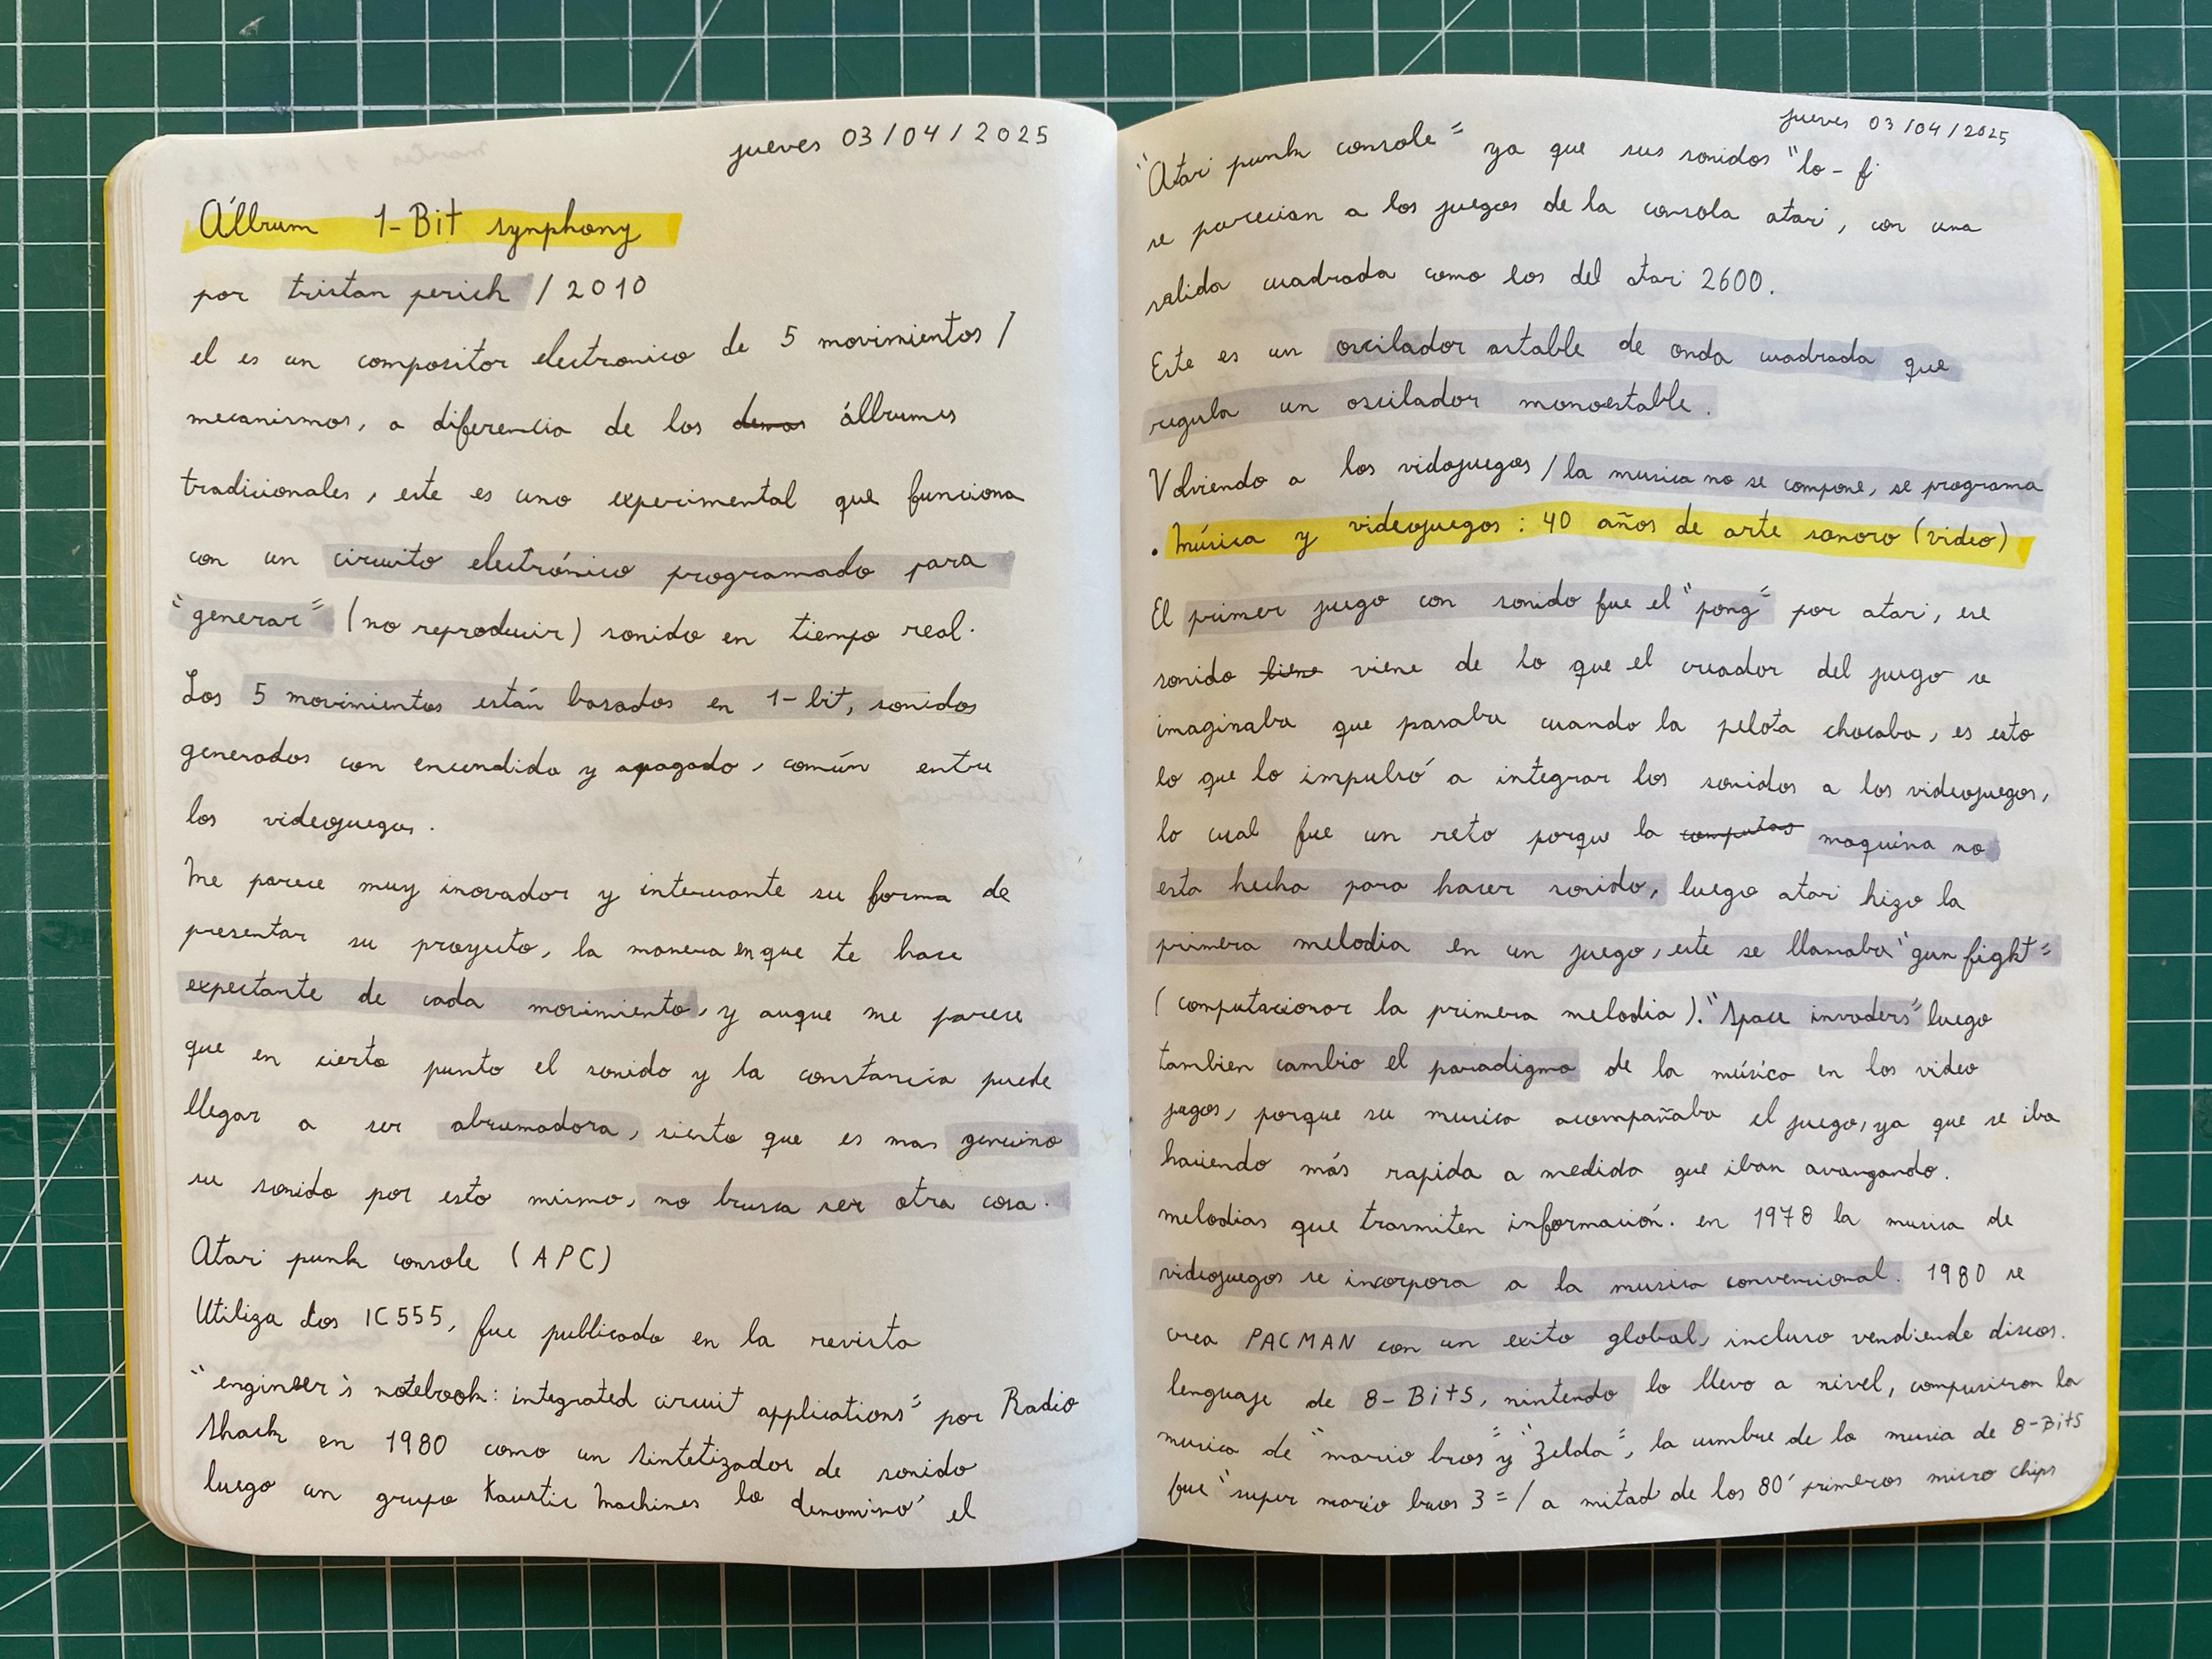 jueves 03/04/2025
Álbum 1-Bit synphony
por tristan perich / 2010
el es un compositor electronico de 5 movimientos /
mecanismos, a diferencia de los demas álbumes
tradicionales, este es uno experimental que funciona
con un circuito electrónico programado para
"generar" (no reproducir) sonido en tiempo real.
Los 5 movimientos están basados en 1-bit, sonidos
generados con encendido y apagado, común entre
los videojuegos.
Me parece muy inovador y interesante su forma de
presentar su proyecto, la manera en que te hace
expectante de cada movimiento, y auque me parece
que en cierto punto el sonido y la constancia puede
llegar a ser abrumadora, siento que es mas genuino
su sonido por esto mismo, no busca ser otra cosa.
Atari punk console (APC)
Utiliza dos IC555, fue publicado en la revista
"engineer's notebook: integrated circuit applications" por Radio
Shack en 1980 como un sintetizador de sonido
luego un grupo Kaustic Machines lo denominó el
jueves 03/04/2025
"Atari punk console" ya que sus sonidos "lo-fi
se parecian a los juegos de la consola atari, con una
salida cuadrada como los del atari 2600.
Este es un oscilador astable de onda cuadrada que
regula un oscilador monoestable.
Volviendo a los vidojuegos / la musica no se compone, se programa
. Música y videojuegos: 40 años de arte sonoro (video)
El primer juego con sonido fue el "pong" por atari, ese
sonido tiene viene de lo que el creador del juego se
imaginaba que pasaba cuando la pelota chocaba, es esto
lo que lo impulsó a integrar los sonidos a los videojuegos,
lo cual fue un reto porque la computas maquina no
esta hecha para hacer sonido, luego atari hizo la
primera melodia en un juego, este se llamaba "gun fight"
(computacionar la primera melodia). "Space invaders" luego
tambien cambio el paradigma de la música en los video
jugos, porque su musica acompañaba el juego, ya que se iba
haciendo más rapida a medida que iban avanzando.
melodias que trasmiten información. en 1978 la musica de
videojuegos se incorpora a la musica convencional. 1980 se
crea PACMAN con un exito global, incluso vendiende discos.
lenguaje de 8-Bits, nintendo lo llevo a nivel, compusieron la
musica de "mario bros" y "Zelda", la cumbre de la musia de 8-Bits
fue "super mario bros 3" / a mitad de los 80' primeros micro chips